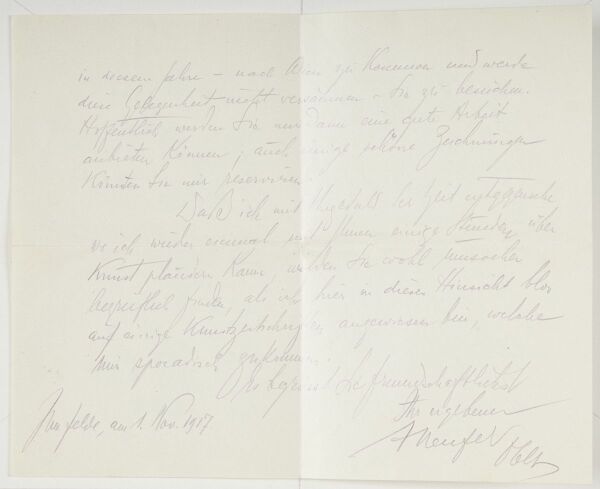 in diesem Jahre – nach Wien zu kommen und werde
diese Gelegenheit nicht versäumen – Sie zu besuchen.
Hoffentlich werden Sie mir dann eine gute Arbeit
anbieten können; auch einige schöne Zeichnungen
könnten Sie mir reservieren.
Daß ich mit Ungeduld der Zeit entgegensehe
wo ich wieder einmal mit Ihnen einige Stunden über
Kunst plaudern kann, werden Sie wohl
begreiflich finden, als ich hier in dieser Hinsicht blos
auf einige Kunstzeitschriften angewiesen bin, welche
mir sporadisch zukommen.
Es begrüsst Sie freundschaftlichst
Ihr ergebener
Im Felde, am 1. Nov. 1917.